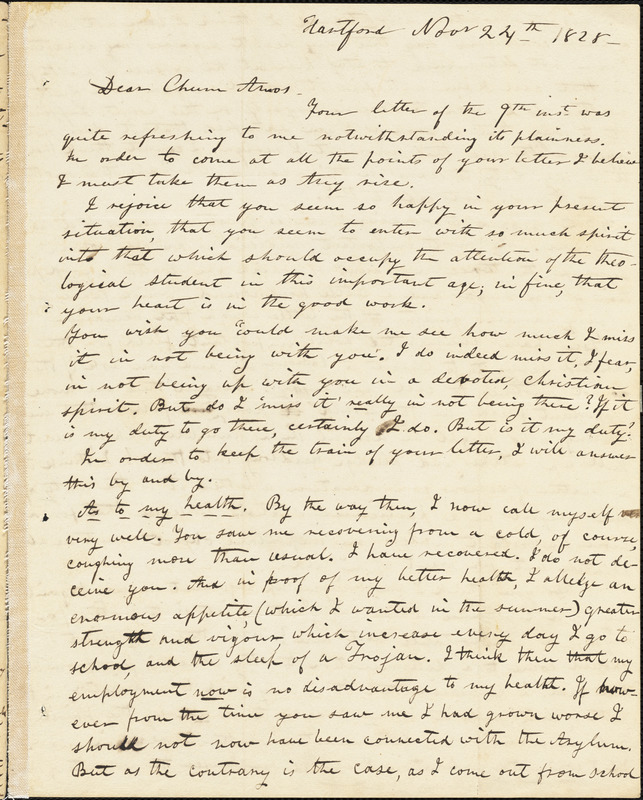 Hartford Nov 24th 1828-
Dear Chum Amos-
Your letter of the 9th inst. was
quite refreshing to me notwithstanding its plainness.
In order to come at all the points of your letter I believe
I must take them as they rise.
I rejoice that you seem so happy in your present
situation, that you seem to enter with so much spirit
into that which should occupy the attention of the theo-
logical student in this important age; in fine, that
your heart is in the good work.
You wish you "could make me see how much I miss
it in not being with you". I do indeed miss it, I fear,
in not being up with you in a devoted, christian
spirit. But do I "miss it" really in not being there? If it
is my duty to go there, certainly I do. But is it my duty?
In order to keep the train of your letter, I will answer
this by and by.
As to my health. By the way then, I now call myself
very well. You saw me recovering from a cold, of course,
coughing more than usual. I have recovered. I do not de-
ceive you. And in proof of my better health, I alledge an
enormous appetite, (which I wanted in the summer) greater
strength and vigour which increase every day I go to
school, and the sleep of a Trojan. I think then that my
employment now is no disadvantage to my health. If how-
ever from the time you saw me I had grown worse I
should not now have been connected with the Asylum.
But as the contrary is the case, as I come out from school